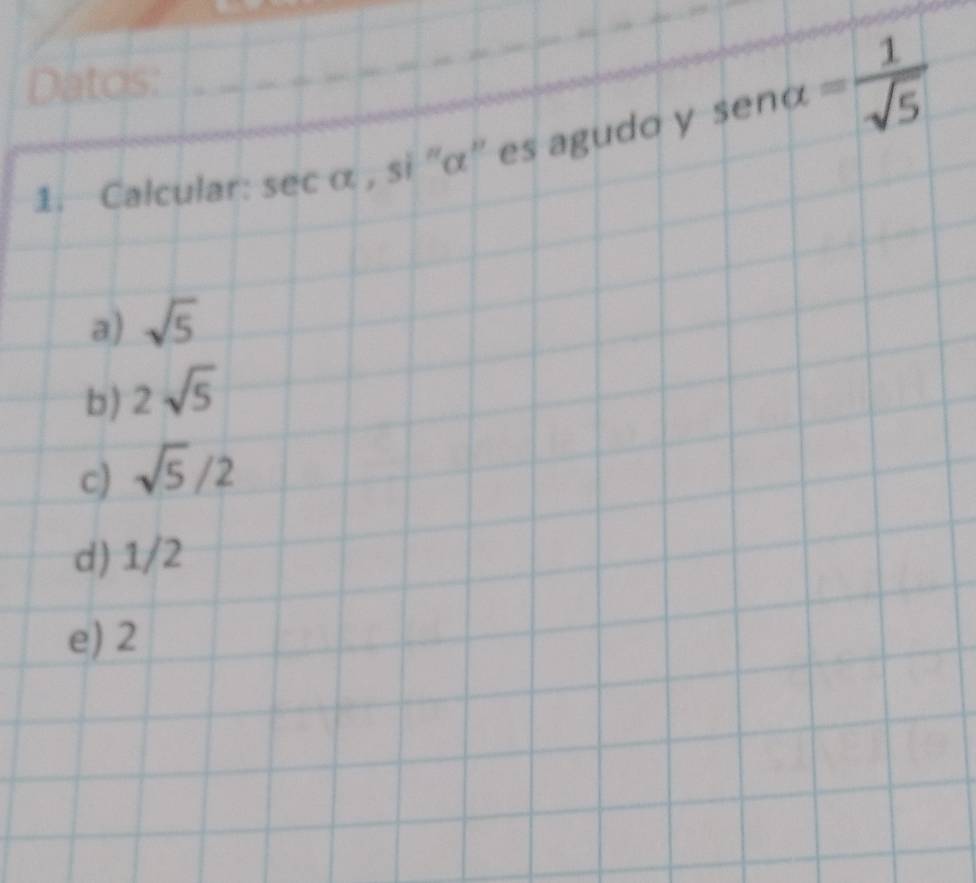 Datos:
1. Calcular: sec α , si "α" es agudo y senα = 1/√5
a) √5
b) 2 √5
c) √5 /2
d) 1/2
e) 2